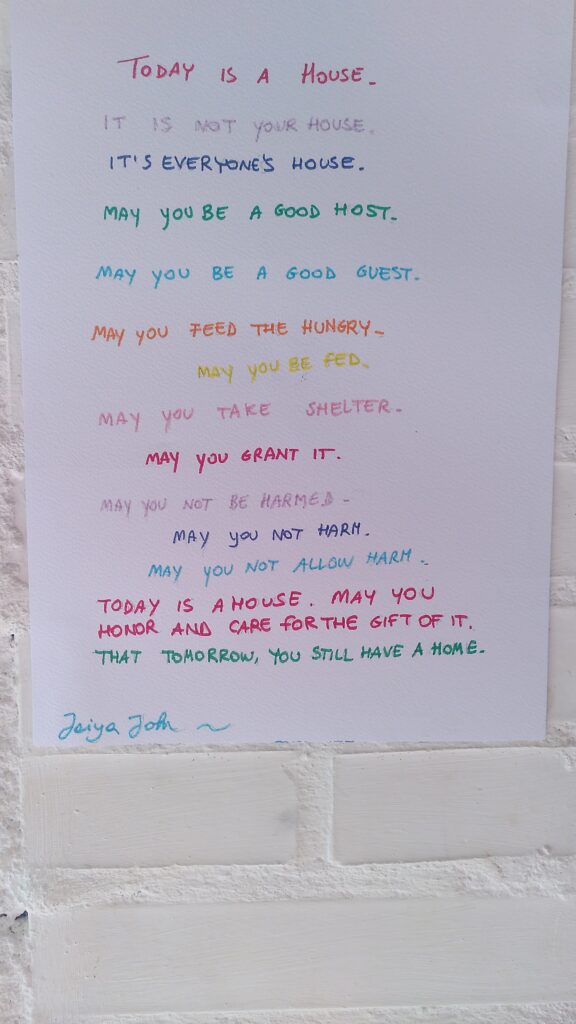 TODAY IS A HOUSE.
IT IS NOT YOUR HOUSE.
IT'S EVERYONE'S HOUSE.
MAY YOU BE A GOOD HOST.
MAY YOU BE A GOOD GUEST.
MAY YOU FEED THE HUNGRY.
MAY YOU BE FED.
MAY YOU TAKE SHELTER.
MAY YOU GRANT IT.
MAY YOU NOT BE HARMED.
MAY YOU NOT HARM.
MAY YOU NOT ALLOW HARM.
TODAY IS A HOUSE. MAY YOU
HONOR AND CARE FOR THE GIFT OF IT.
THAT TOMORROW, YOU STILL HAVE A HOME.
Jaiya John ~